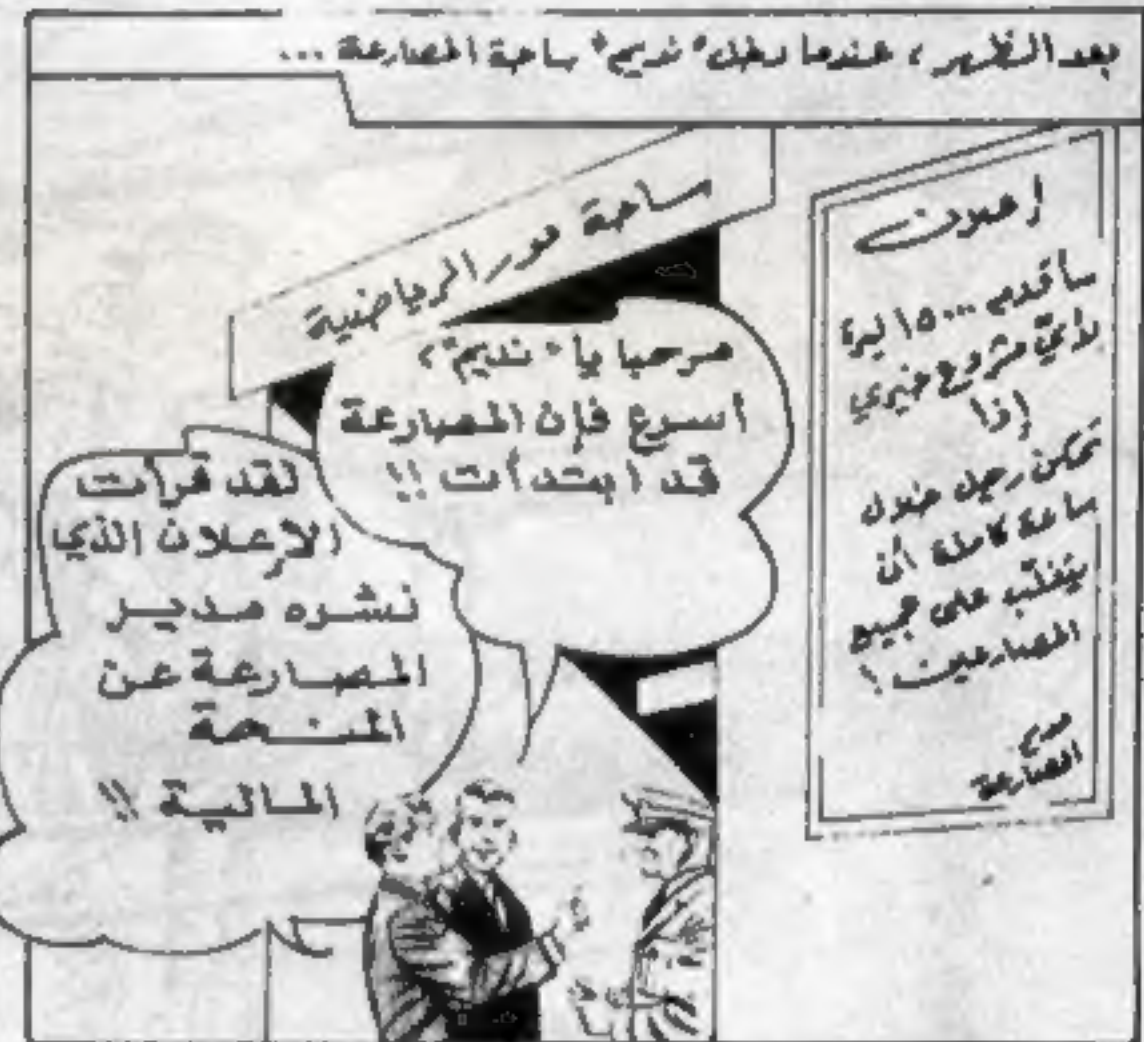 بعد الظهر، عندما دخل "نديم" ساحة المصارعة ...
ساحة مور الرياضية
إعلان
سأقدم ١٥٠٠٠ ليرة
لأي مشروع خيري
إذا
تمكن رجل خلال
ساعة كاملة أن
يتغلب على جميع
المصارعين!
المصارعة
مرحبا يا "نديم"،
أسرع فإن المصارعة
قد ابتدأت !!
لقد قرأت
الإعلان الذي
نشره مدير
المصارعة عن
المنحة
المالية !!